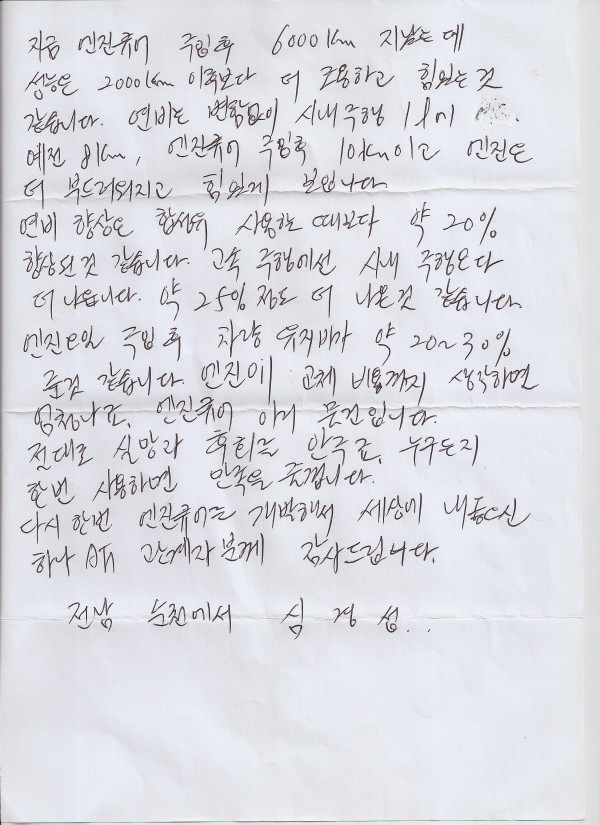 지금 엔진큐어 주입후 6000Km 지났는데
성능은 2000Km 이죽보다 더 조용하고 힘있는것
같습니다. 연비는 변함없이 시내주행 1ℓ에
예전 8Km, 엔진큐어 주입후 10Km이고 엔진은
더 부드러워지고 힘있게 보입니다.
연비 향상은 합성유 사용하는 때보다 약 20%
향상된것 같습니다. 고속 주행에선 시내 주행보다
더 나옵니다. 약 25% 정도 더 나온것 같습니다.
엔진e일 주입후 차량 유지비가 약 20~30%
준것 같습니다. 엔진 교체 비용까지 생각하면
엄청나죠. 엔진큐어 물건입니다.
절대로 실망과 후회는 안주죠. 누구든지
한번 사용하면 만족을 줄겁니다.
다시한번 엔진큐어를 개발해서 세상에 내놓으신
하나 ATi 관계자분께 감사드립니다.
전남 순천에서 심경섭..